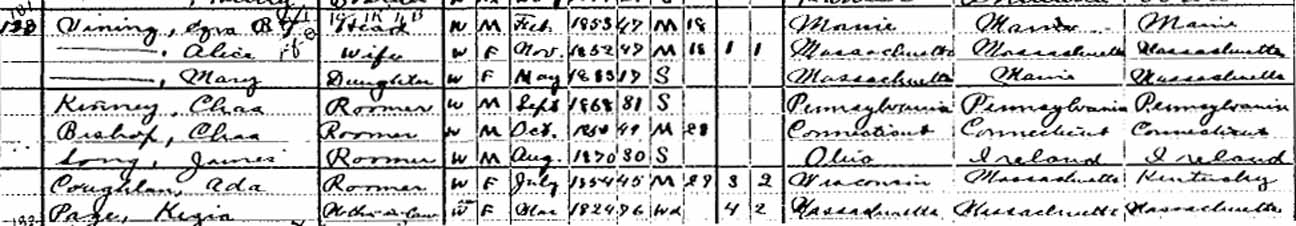 Vining, Ezra Head W M Feb. 1853 47 M 18 Maine Maine Maine
———, Alice Wife W F Nov. 1852 47 M 18 1 1 Massachusetts Massachusetts Massachusetts
———, Mary Daughter W F May 1883 17 S Massachusetts Maine Massachusetts
Kinney, Chas Roomer W M Sept 1868 31 S Pennsylvania Pennsylvania Pennsylvania
Bishop, Chas Roomer W M Oct. 1850 49 M 28 Connecticut Connecticut Connecticut
Long, James Roomer W M Aug. 1870 30 S Ohio Ireland Ireland
Coughlan, Ada Roomer W F July 1854 45 M 29 3 2 Wisconsin Massachusetts Kentucky
Page, Kezia Mother-in-law W F Mar 1824 76 Wd 4 2 Massachusetts Massachusetts Massachusetts